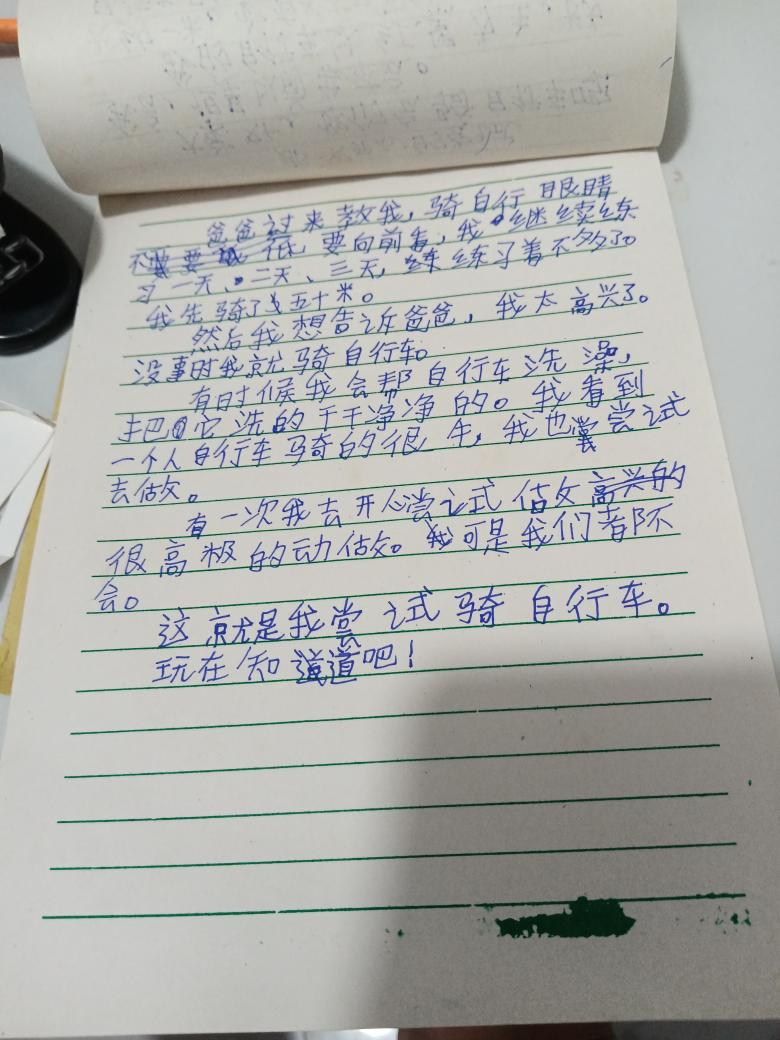 爸爸过来教我，骑自行 眼睛
不要低，要向前看，我继续练
习一天、二天、三天，练练了着不多了。
我先骑了五十米。
然后我想告诉爸爸，我太高兴了。
没事时我就骑自行车。
有时候我会帮自行车洗澡，
把它洗的干干净净的。我看到
一个人自行车骑的很牛，我也尝尝试
去做。
有一次我去开心尝试做
很高极的动做。可是我们都不
会。
这就是我尝试骑自行车。
玩在知道吧！